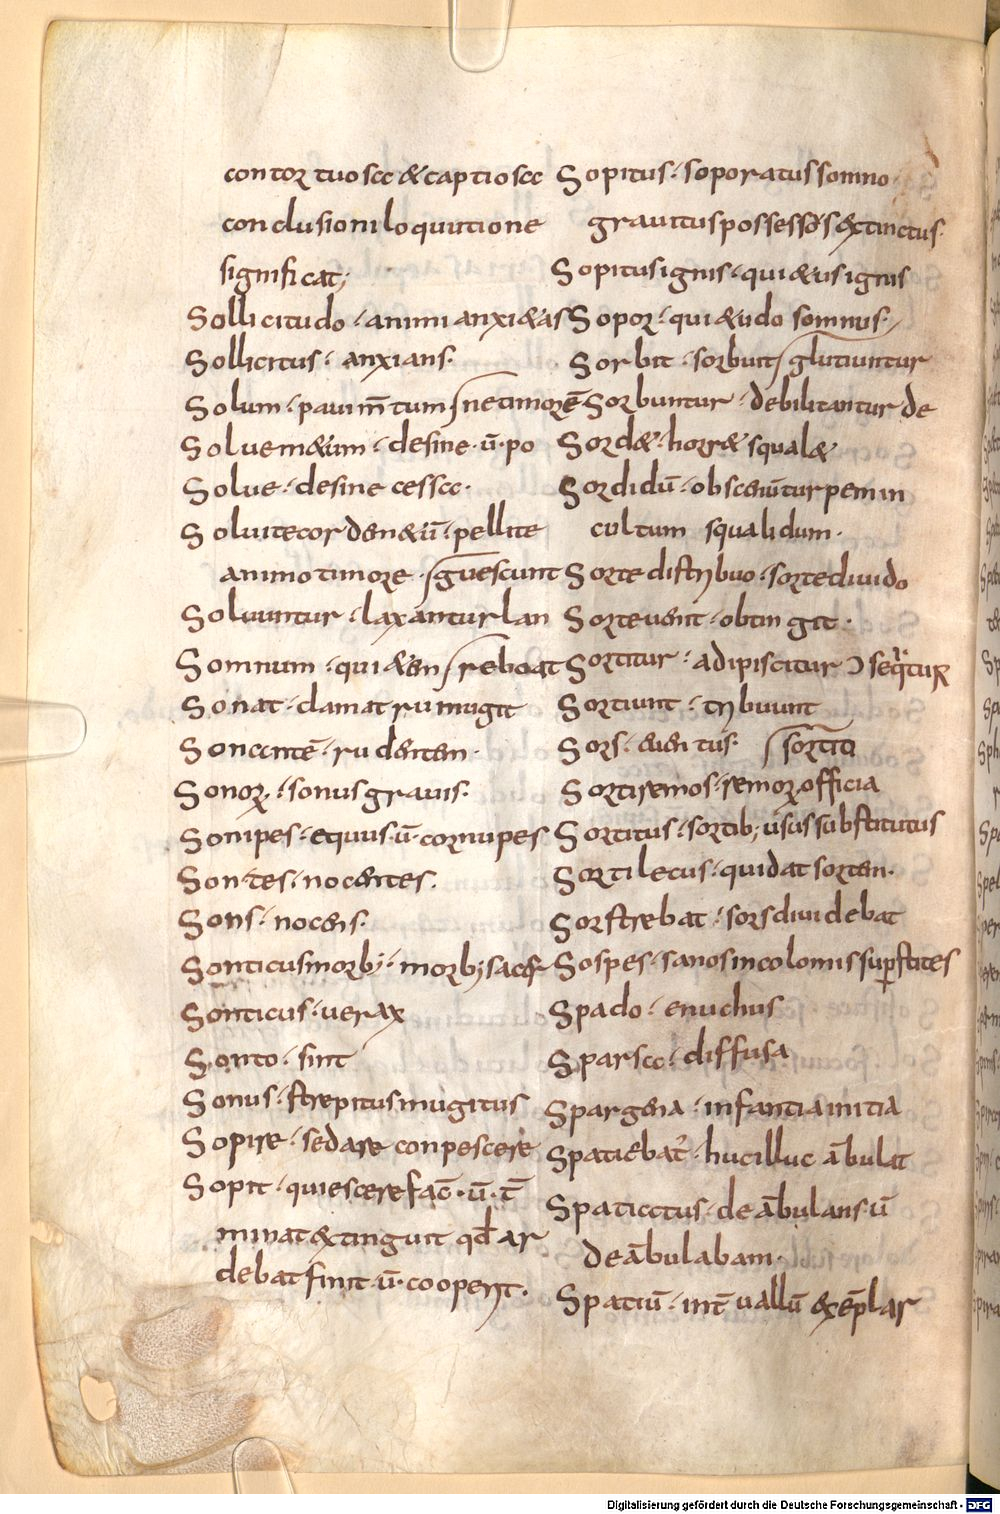 contortuosa &captiosa
conclusioni loquutione
significat;
Sollicitudo · animi anxi&as
Sollicitus · anxians·
Solum · pauim̄tum
Solue m&um · desine · ū · po
/ne timorē
Solue · desine cessa·
Soluite corden&ū · pellite
animo timore · /guescunt
Soluuntur · laxantur lan
Somnum · qui &en /reboat
Sonat · clamat ru mugit
Sonantē · rudentem·
Sonor · sonus grauis·
Sonipes · equus · ū · cornipes
Sontes · nocentes·
Sons · nocens·
Sonticus morb; · morb; sacer
Sonticus · uerax
Sonto · sint
Sonus · strepitus mugitus
Sopire · sedare conpescere
Sopit · quiescere fac̄ · ū · t̄
minat extinguit qđ ar
debat finit · ū · cooperit·
Sopitus · soporatus somno
grauitus possessos extinctus·
Sopitus ignis · qui &us ignis
Sopor · qui &udo somnus·
Sorbit · sorbuit /glutiuntur
Sorbuntur · debilitantur de
Sord& · horr& squal&
Sordidū · obscenū turpem in
cultum squalidum·
Sorte distribuo · sorte diuido
Sorte uenit · obtingit·
Sortitur · adipiscitur ɔsequitur
Sortiunt · tribuunt
Sors · euentus· /sortio
Sortiremos · remor officia
Sortitus · sortib; usus substitutus
Sortilecus · qui dat sortem·
Sorstrebat · sors diuidebat
Sospes · sanos incolomis sup̱stites
Spado · enuchus
Sparsa · diffusa
Spargena · infantia initia
Spatiebat᷑ · huc illuc ābulat
Spatiatus · deābulans · ū
deābulabam·
Spatiū · int̄ uallū exēplar
Digitalisierung gefördert durch die Deutsche Forschungsgemeinschaft - DFG